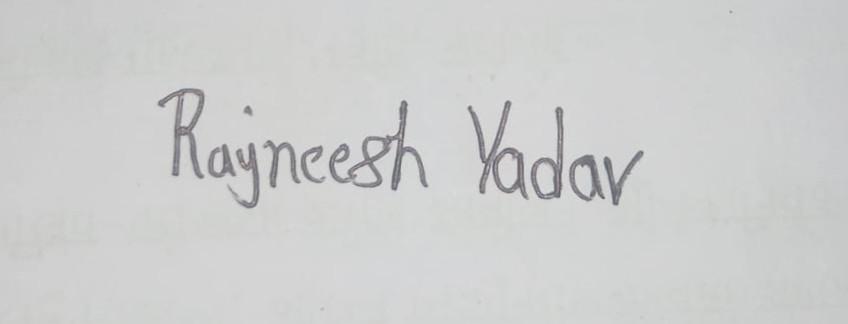 Rajneesh Yadav